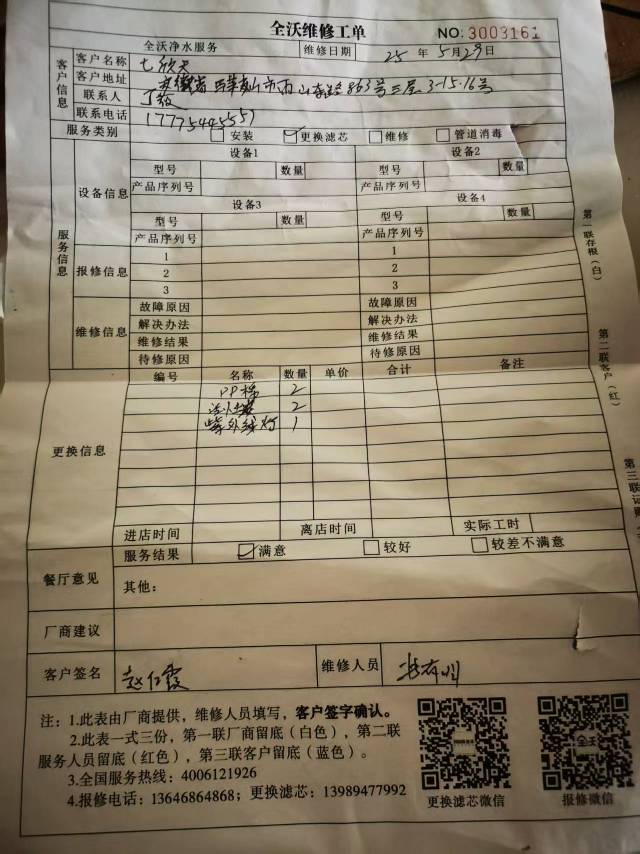 全沃维修工单
NO. 3003161
全沃净水服务 维修日期 25 年 5月29日
客户信息
客户名称 七欣天
客户地址 安徽省马鞍山市雨山 863号三层3-15.16号
联系人 丁
联系电话 17775445557
服务类别 安装 更换滤芯 维修 管道消毒
服务信息
设备信息
设备1 设备2
型号 数量 型号 数量
产品序列号 产品序列号
设备3 设备4
型号 数量 型号 数量
产品序列号 产品序列号
报修信息
1 1
2 2
3 3
维修信息
故障原因 故障原因
解决办法 解决办法
维修结果 维修结果
待修原因 待修原因
更换信息
编号 名称 数量 单价 合计 备注
PP棉 2
2
紫外线灯 1
进店时间 离店时间 实际工时
餐厅意见
服务结果 满意 较好 较差不满意
其他：
厂商建议
客户签名 赵仁霞 维修人员
注：1.此表由厂商提供，维修人员填写，客户签字确认。
2.此表一式三份，第一联厂商留底（白色），第二联
服务人员留底（红色），第三联客户留底（蓝色）。
3.全国服务热线：4006121926
4.报修电话：13646864868；更换滤芯：13989477992
更换滤芯微信
报修微信
第一联存根（白）
第二联客户（红）
第三联